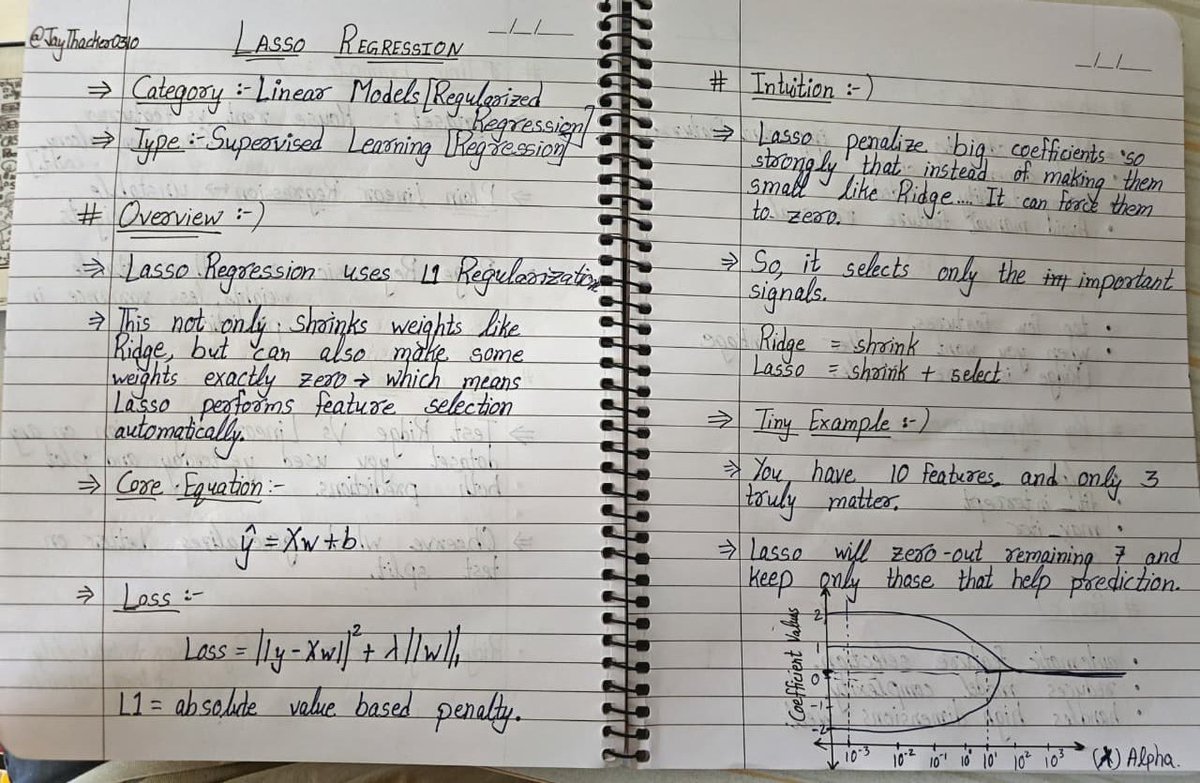 @JayThacker0310
LASSO REGRESSION
_/_/_
⇒ Category :- Linear Models [Regularized
Regression]
⇒ Type :- Supervised Learning [Regression]
# Overview :-)
⇒ Lasso Regression uses L1 Regularization
⇒ This not only shrinks weights like
Ridge, but can also make some
weights exactly zero → which means
Lasso performs feature selection
automatically.
⇒ Core Equation :-
ŷ = Xw + b.
⇒ Loss :-
Loss = ||y - Xw||² + λ||w||₁
L1 = absolute value based penalty.
_/_/_
# Intuition :-)
⇒ Lasso penalize big coefficients so
strongly that instead of making them
small like Ridge.... It can force them
to zero.
⇒ So, it selects only the imp important
signals.
Ridge = shrink
Lasso = shrink + select
⇒ Tiny Example :-)
⇒ You have 10 features, and only 3
truly matter.
⇒ Lasso will zero-out remaining 7 and
keep only those that help prediction.
Coefficient Values
2
1
0
-1
-2
10⁻³ 10⁻² 10⁻¹ 10⁰ 10¹ 10² 10³ (λ) Alpha.